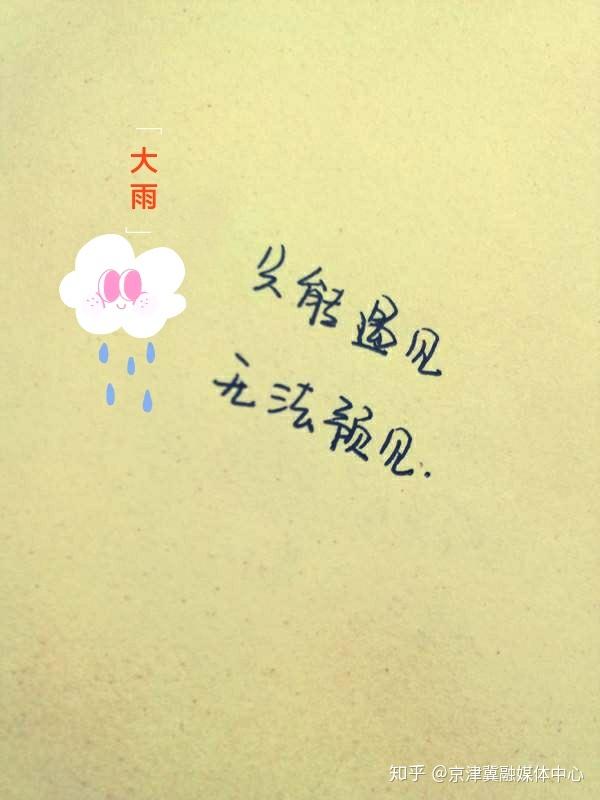 「
大
雨
」
只能遇见
无法预见.
知乎 @京津冀融媒体中心